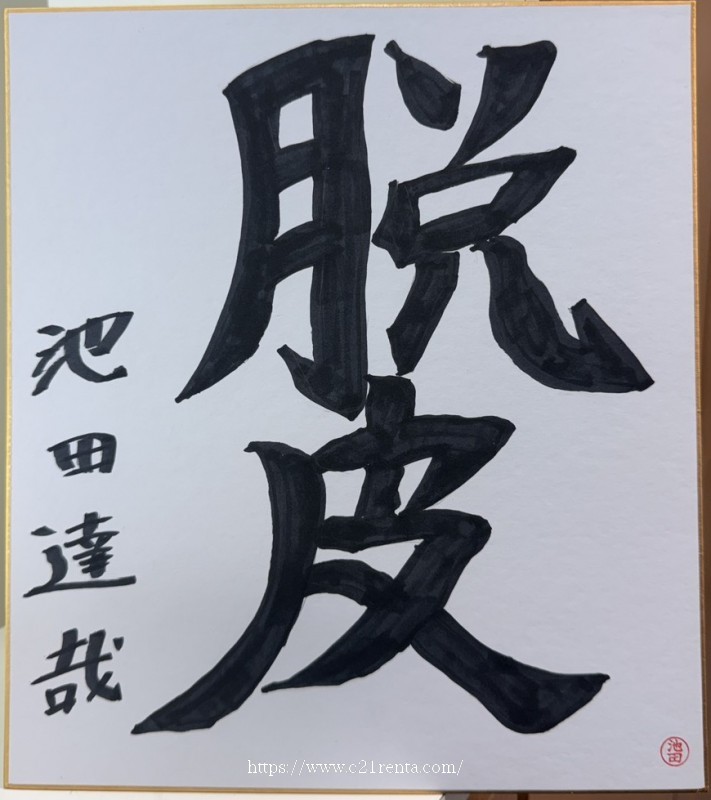 脱皮
池田達哉
池田
https://www.c21renta.com/